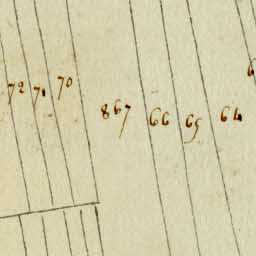 72 71 70 867 66 65 64 6